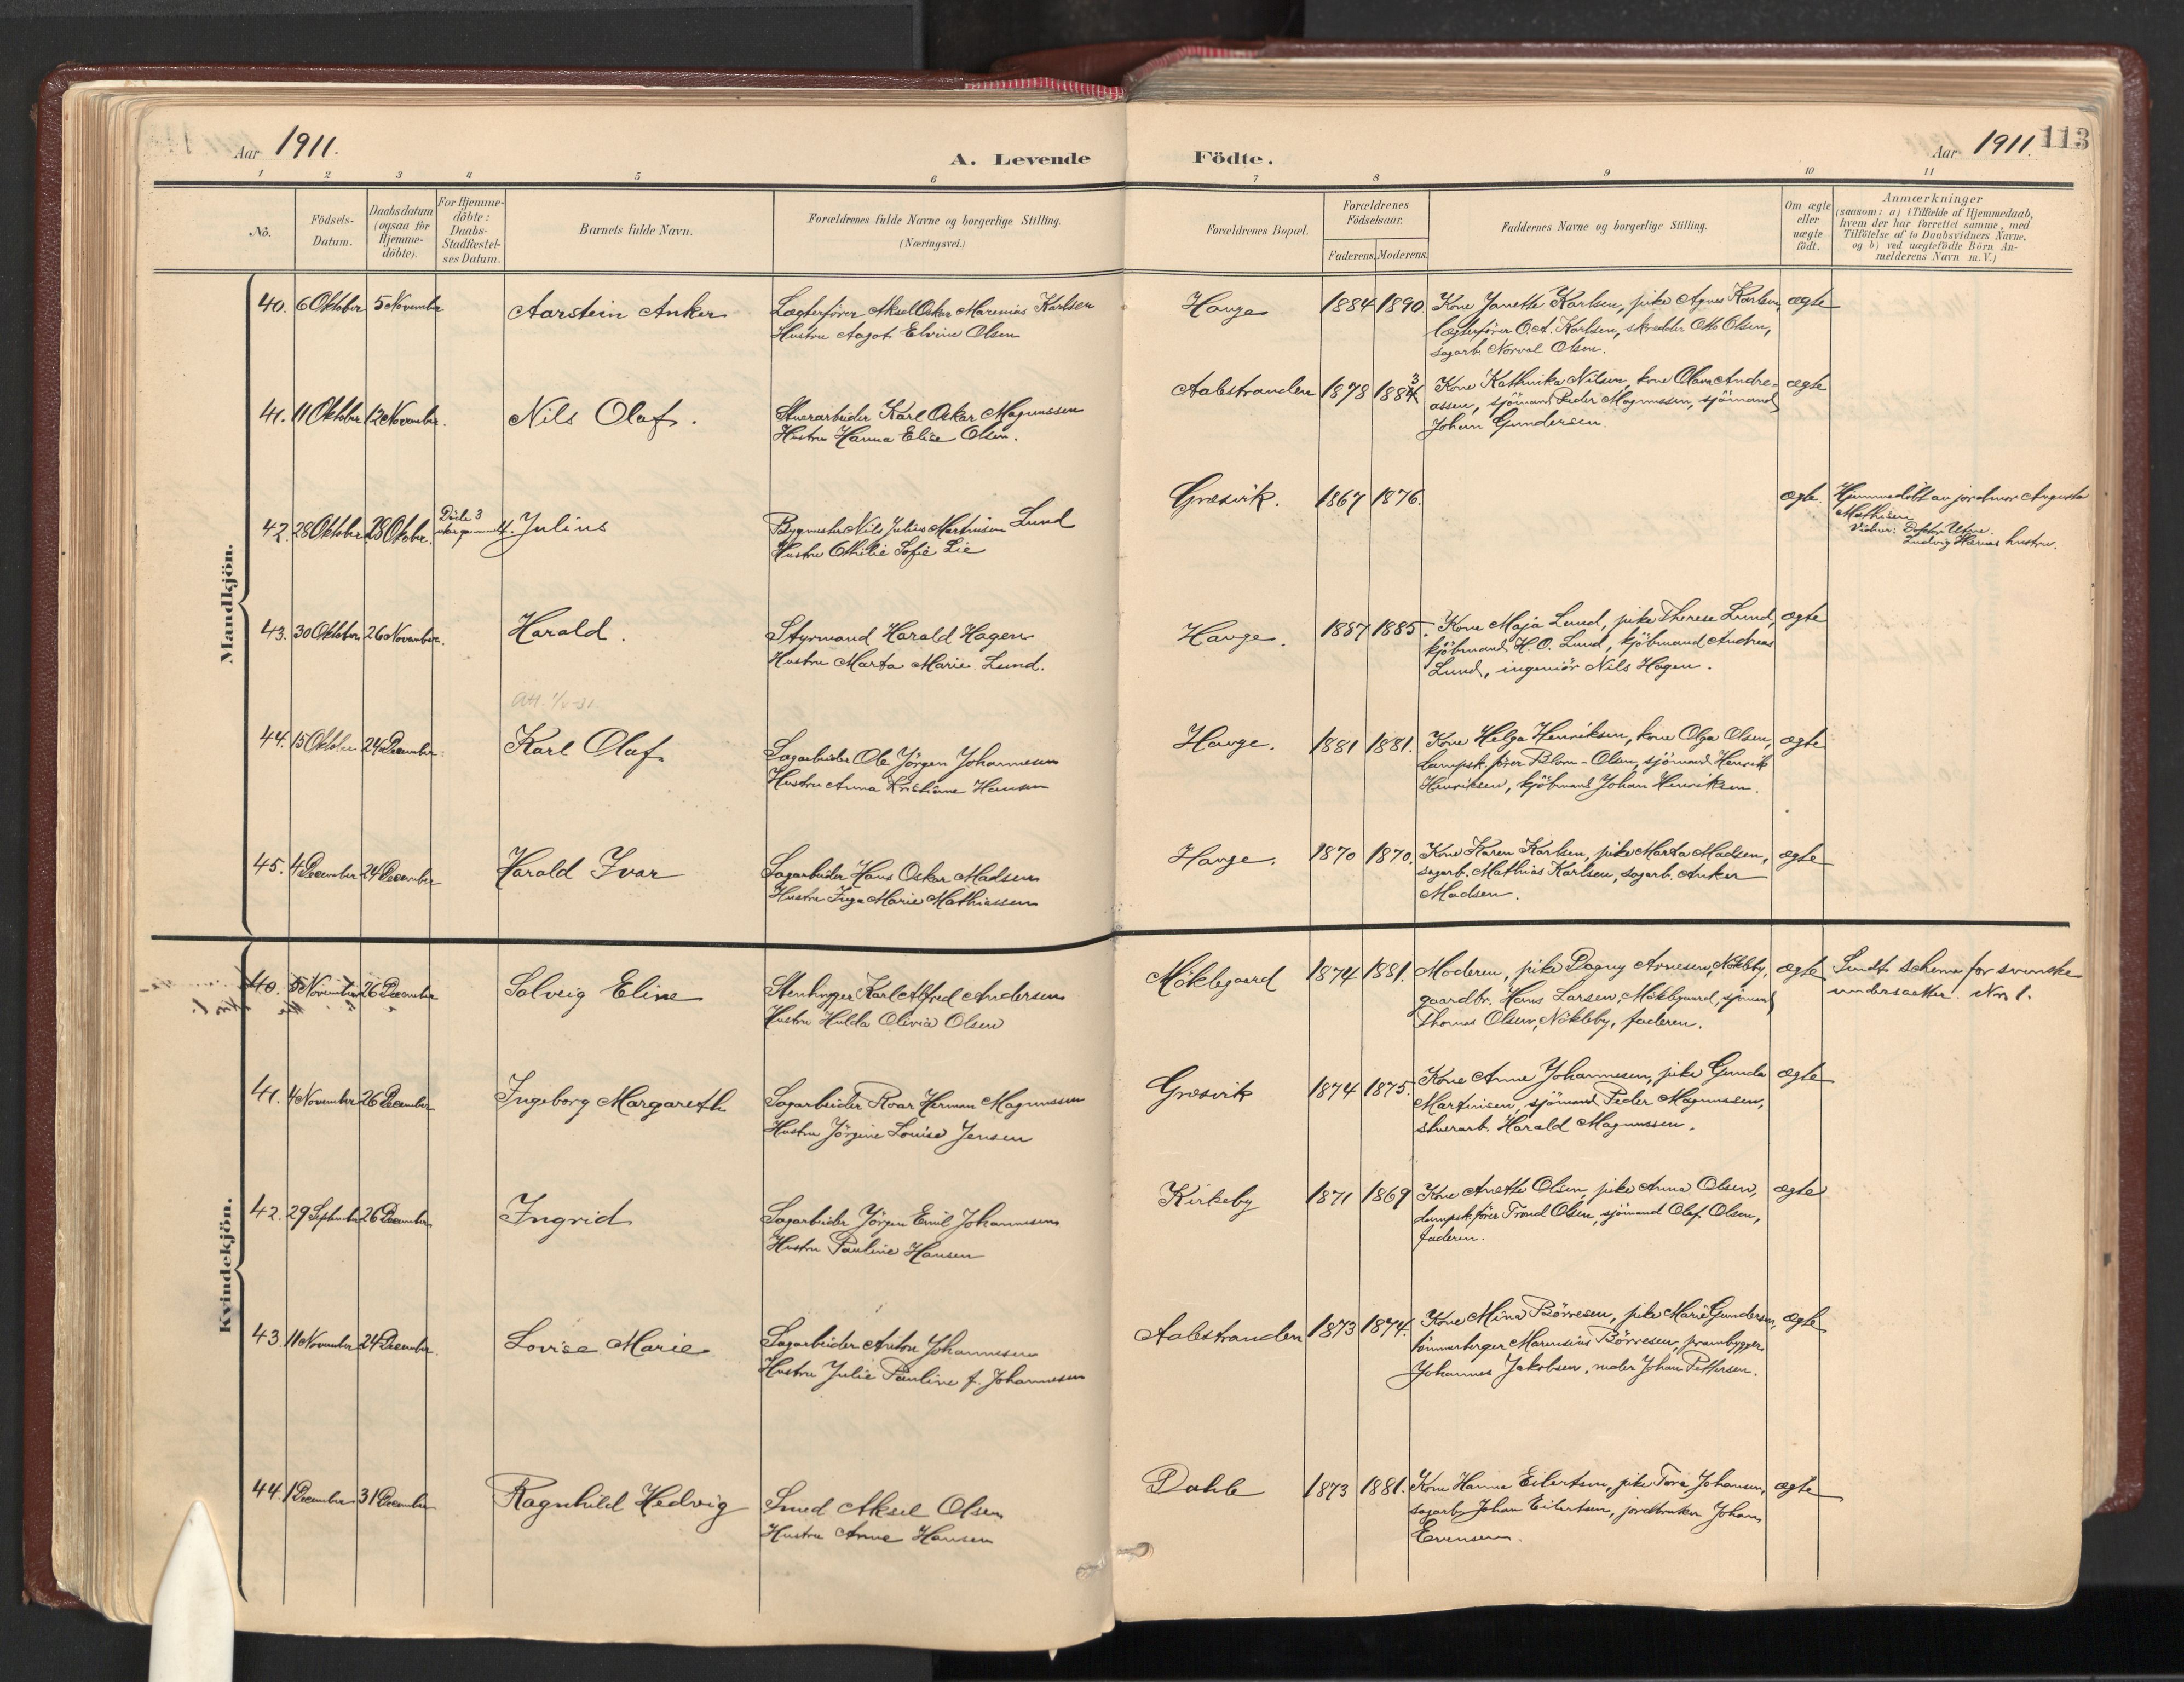 Aar 1911.
A. Levende Födte.
Aar 1911. 113
1 2 3 4 5 6 7 8 9 10 11
No.
Födsels-
Datum.
Daabsdatum
(ogsaa for
Hjemme-
döbte).
For Hjemme-
döbte:
Daabs-
Stadfæstel-
ses Datum.
Barnets fulde Navn.
Forældrenes fulde Navne og borgerlige Stilling.
(Næringsvei.)
Forældrenes Bopæl.
Forældrenes
Födselsaar.
Faderens. Moderens.
Faddernes Navne og borgerlige Stilling.
Om ægte
eller
uægte
født.
Anmærkninger
(saasom: a) i Tilfælde af Hjemmedaab,
hvem der har forrettet samme, med
Tilföielse af to Daabsvidners Navne,
og b) ved uægtefödte Börn An-
melderens Navn m. V.)
Mandkjön.
40. 6 Oktober 5 November Aarstein Anker
Lægterförer Aksel Oskar Marenius Karlsen
Hustru Aagot Elvine Olsen
Hauge 1884 1890
Kone Janette Karlsen, pike Agnes Karlsen,
lægterförer O.A. Karlsen, skrædder Otto Olsen,
sagarb. Norval Olsen.
ægte
41. 11 Oktober 12 November. Nils Olaf.
Stuerarbeider Karl Oskar Magnussen
Hustru Hanna Elise Olsen.
Aalestranden 1878 1884 3
Kone Kathinka Nilsen, kone Olava Andre-
assen, sjömand Peder Magnussen, sjömand
Johan Gundersen.
ægte
42. 28 Oktober 28 Oktober. Döde 3
uker gammelt. Julius
Bygmester Nils Julius Martinsen Lund
Hustru Othilie Sofie Lie
Græsvik. 1867 1876.
ægte.
Hjemmedöbt av jordmor Augusta
Mathisen
Vidner: Doktor Utne.
Ludvig Henies hustru.
43. 30 Oktober 26 November. Harald.
Styrmand Harald Hagen
Hustru Marta Marie Lund.
Hauge. 1887 1885.
Kone Maja Lund, pike Therese Lund,
kjöbmand H. O. Lund, kjöbmand Andreas
Lund, ingeniör Nils Hagen.
ægte
Att. 1/5-31
44. 15 Oktober 24 December. Karl Olaf.
Sagarbeider Ole Jörgen Johannesen
Hustru Anna Kristiane Hansen
Hauge. 1881 1881.
Kone Helga Henriksen, kone Olga Olsen,
dampsk.förer Blom-Olsen, sjömand Henrik
Henriksen, kjöbmand Johan Henriksen.
ægte
45. 4 December 24 December Harald Ivar
Sagarbeider Hans Oskar Madsen
Hustru Inga Marie Mathiassen
Hauge. 1870 1870.
Kone Karen Karlsen, pike Marta Madsen,
sagarb. Mathias Karlsen, sagarb. Anker
Madsen.
ægte
Kvindekjön.
40. 5 November 26 December Solveig Eline
Stenhugger Karl Alfred Andersen
Hustru Hulda Olivia Olsen
Möklegaard 1874 1881.
Moderen, pike Dagny Arnesen, Nökleby,
gaardbr. Hans Larsen, Möklegaard, sjömand
Thomas Olsen, Nökleby, faderen.
ægte
Sendt schema for svenske
undersaatter. No 1.
41. 4 November 26 December Ingeborg Margareth
Sagarbeider Roar Herman Magnussen
Hustru Jörgine Louise Jensen
Græsvik 1874 1875.
Kone Anne Johannesen, pike Gunda
Martinsen, sjömand Peder Magnussen,
stuerarb. Harald Magnussen.
ægte
42. 29 September 26 December Ingrid
Sagarbeider Jörgen Emil Johannesen
Hustru Pauline Hansen
Kirkeby 1871 1869
Kone Anette Olsen, pike Anna Olsen,
dampsk.förer Trond Olsen, sjömand Olaf Olsen,
faderen.
ægte
43. 11 November 24 December. Lovise Marie
Sagarbeider Anton Johannesen
Hustru Julie Pauline f. Johannesen
Aalestranden 1873 1874.
Kone Mina Börresen, pike Marie Gundersen,
tömmerberger Marensius Börresen, prambygger
Johannes Jakobsen, maler Johan Pettersen.
ægte
44. 1 December 31 December Ragnhild Hedvig
Smed Aksel Olsen
Hustru Anne Hansen
Dahle 1873 1881.
Kone Hanna Eilertsen, pike Tora Johansen,
sagarb. Johan Eilertsen, jordbruker Johan
Evensen.
ægte